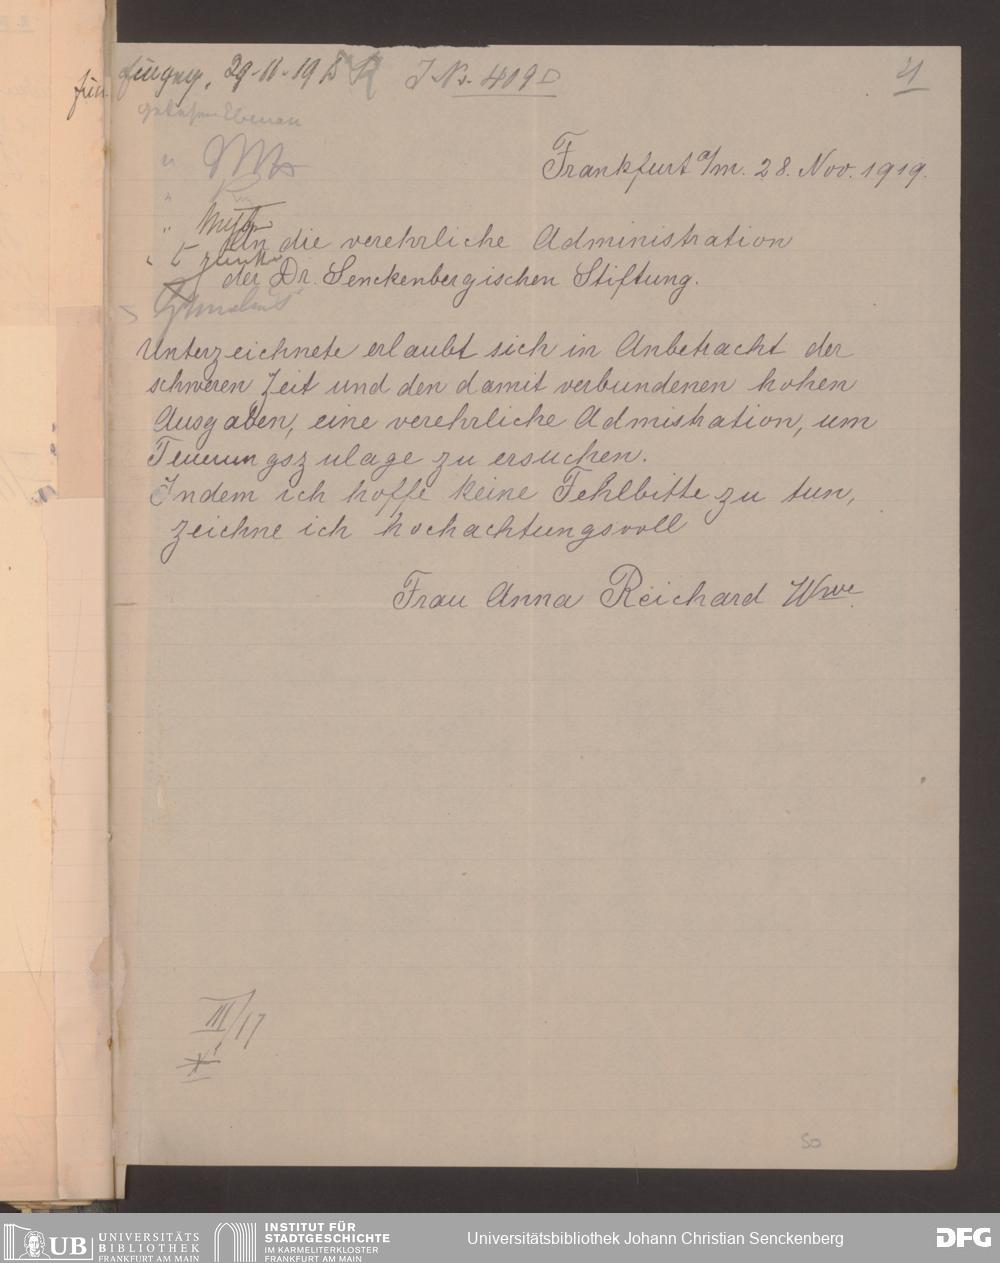 J. No. 409 D
Frankfurt a/m. 28. Nov. 1919.
An die verehrliche Administration
der Dr. Senckenbergischen Stiftung.
Unterzeichnete erlaubt sich in Anbetracht der
schweren Zeit und den damit verbundenen hohen
Ausgaben, eine verehrliche Admistration, um
Teuerungszulage zu ersuchen.
Indem ich hoffe keine Fehlbitte zu tun,
zeichne ich hochachtungsvoll
Frau Anna Reichard Wwe.
III/17
50
UB UNIVERSITÄTS
BIBLIOTHEK
FRANKFURT AM MAIN
INSTITUT FÜR
STADTGESCHICHTE
IM KARMELITERKLOSTER
FRANKFURT AM MAIN
Universitätsbibliothek Johann Christian Senckenberg
DFG